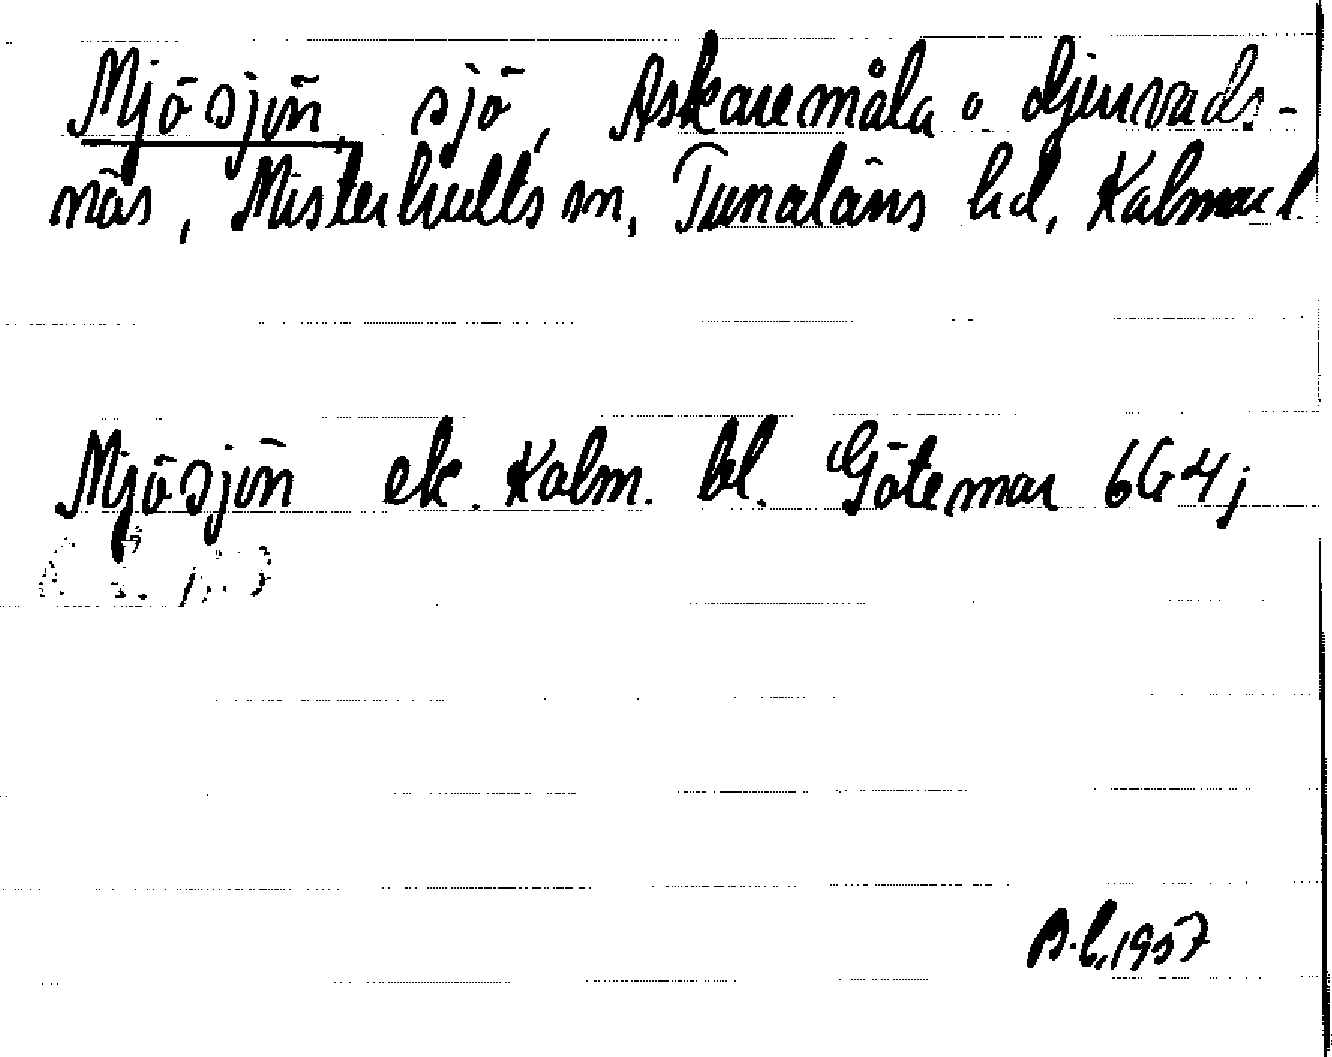 Mjösjön, sjö, Askaremåla o djurvads-
näs, Misterhults sn, Tunaläns hd, Kalmar l.
Mjösjön ek. Kalm. bl. Götemar 6G4j
B.L. 1957